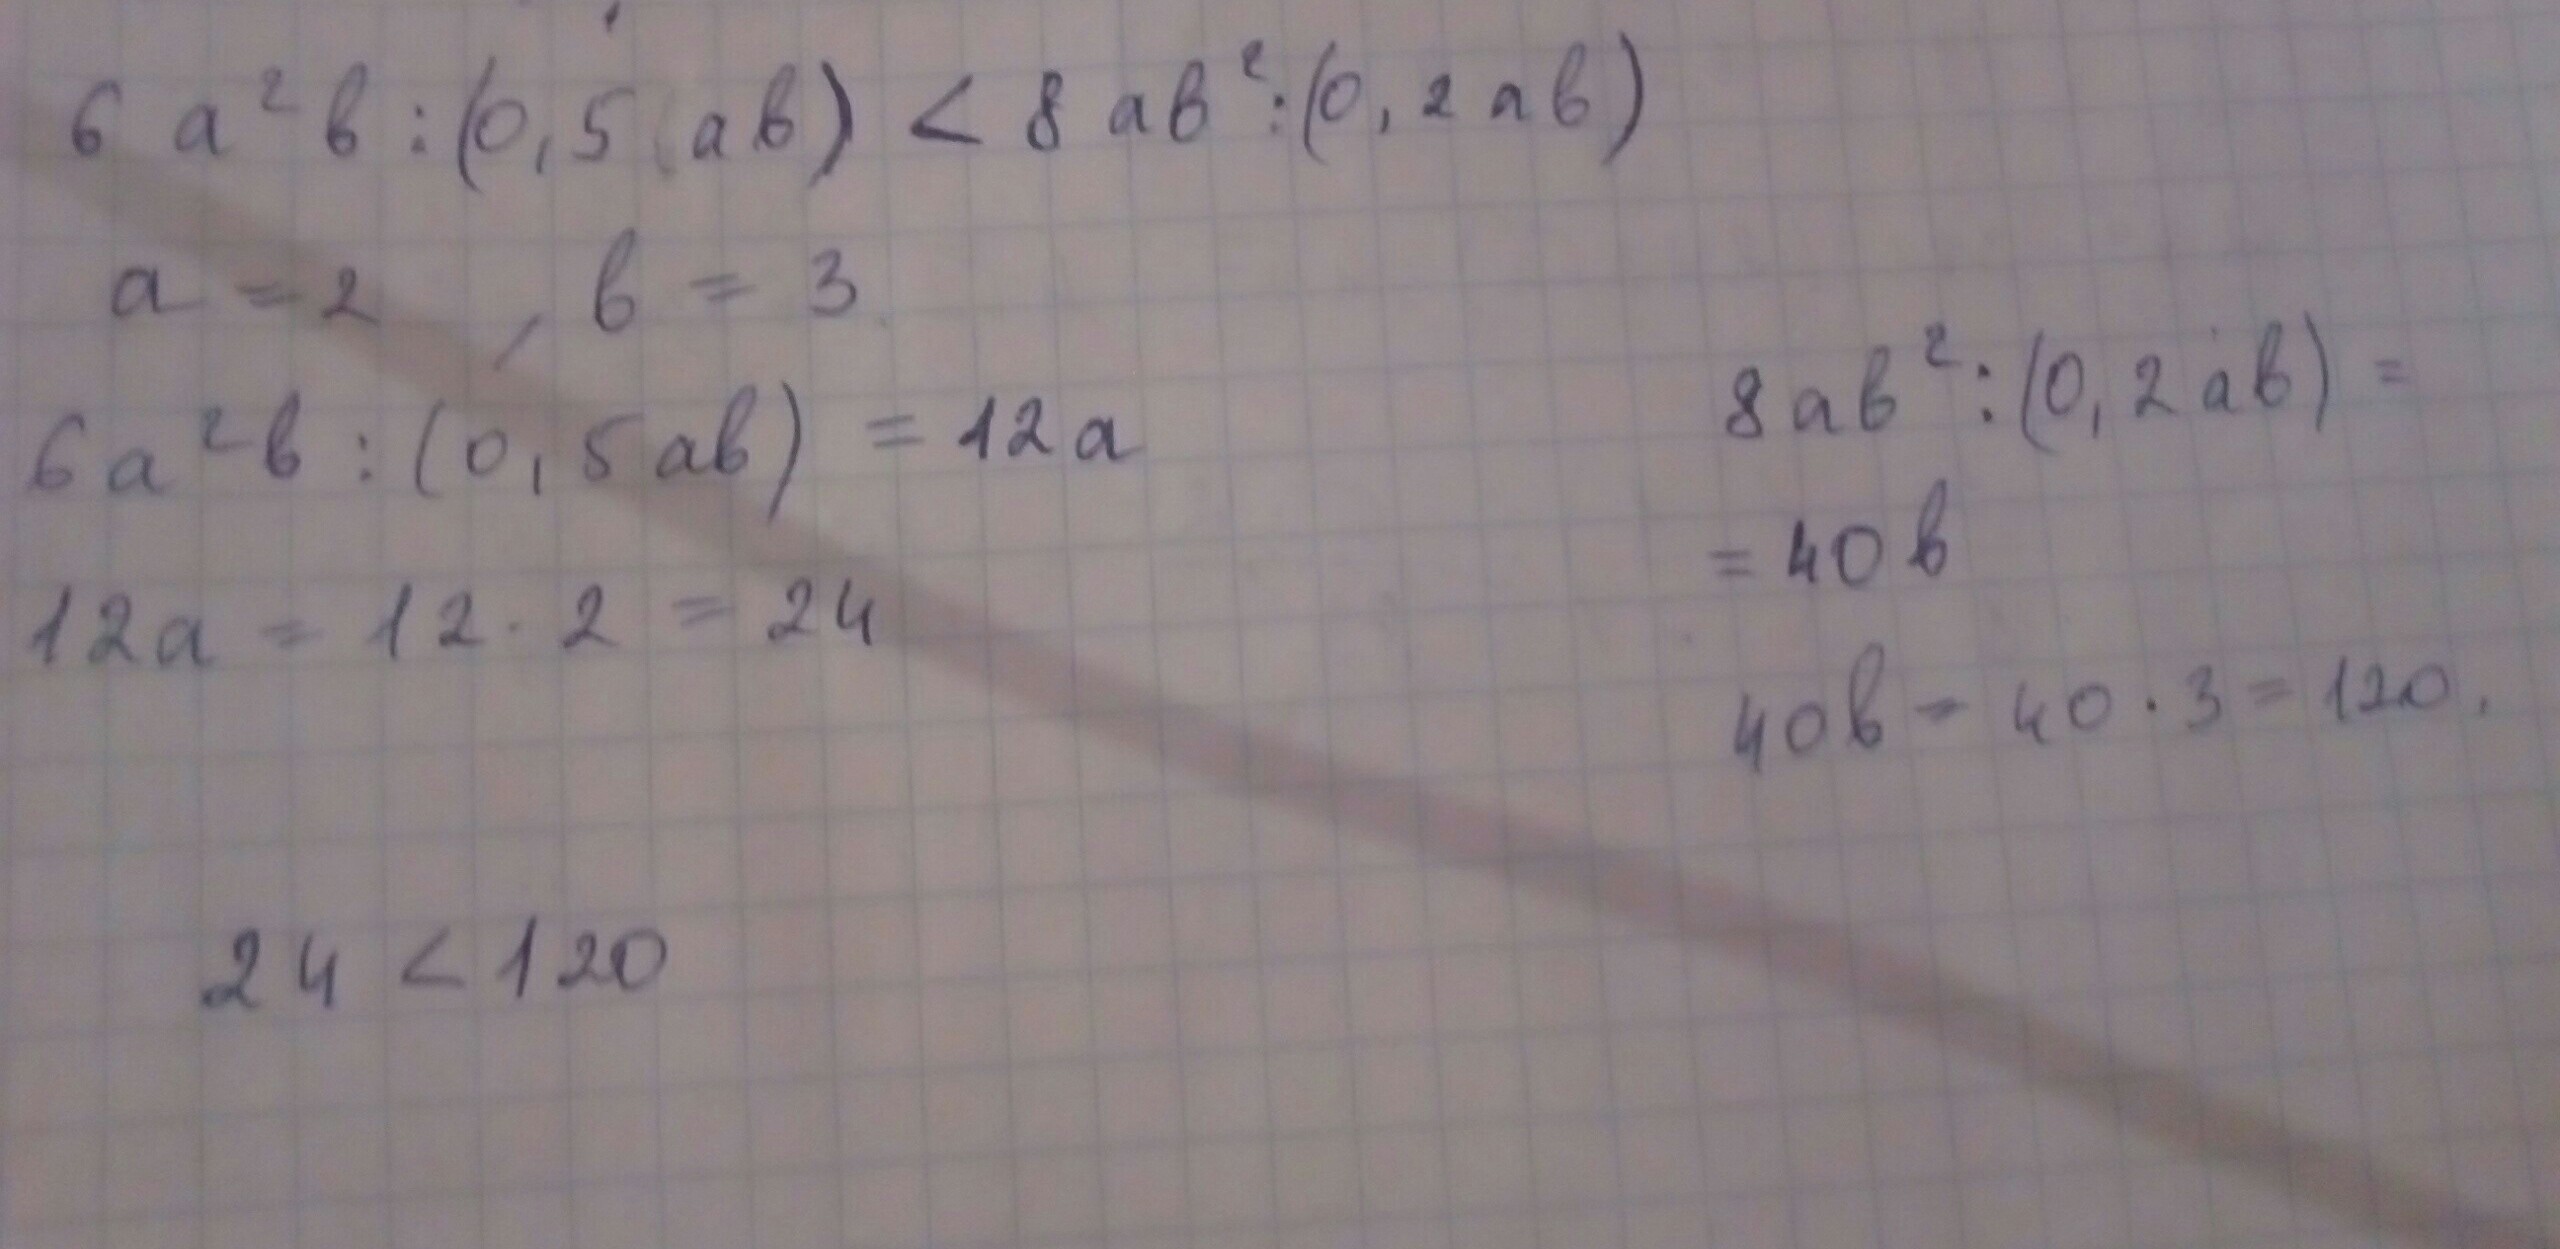 6 a² b : (0,5 ab) < 8 ab² : (0,2 ab)
a = 2 , b = 3
6a²b : (0,5ab) = 12a
12a = 12 · 2 = 24
8ab² : (0,2ab) =
= 40b
40b = 40 · 3 = 120.
24 < 120